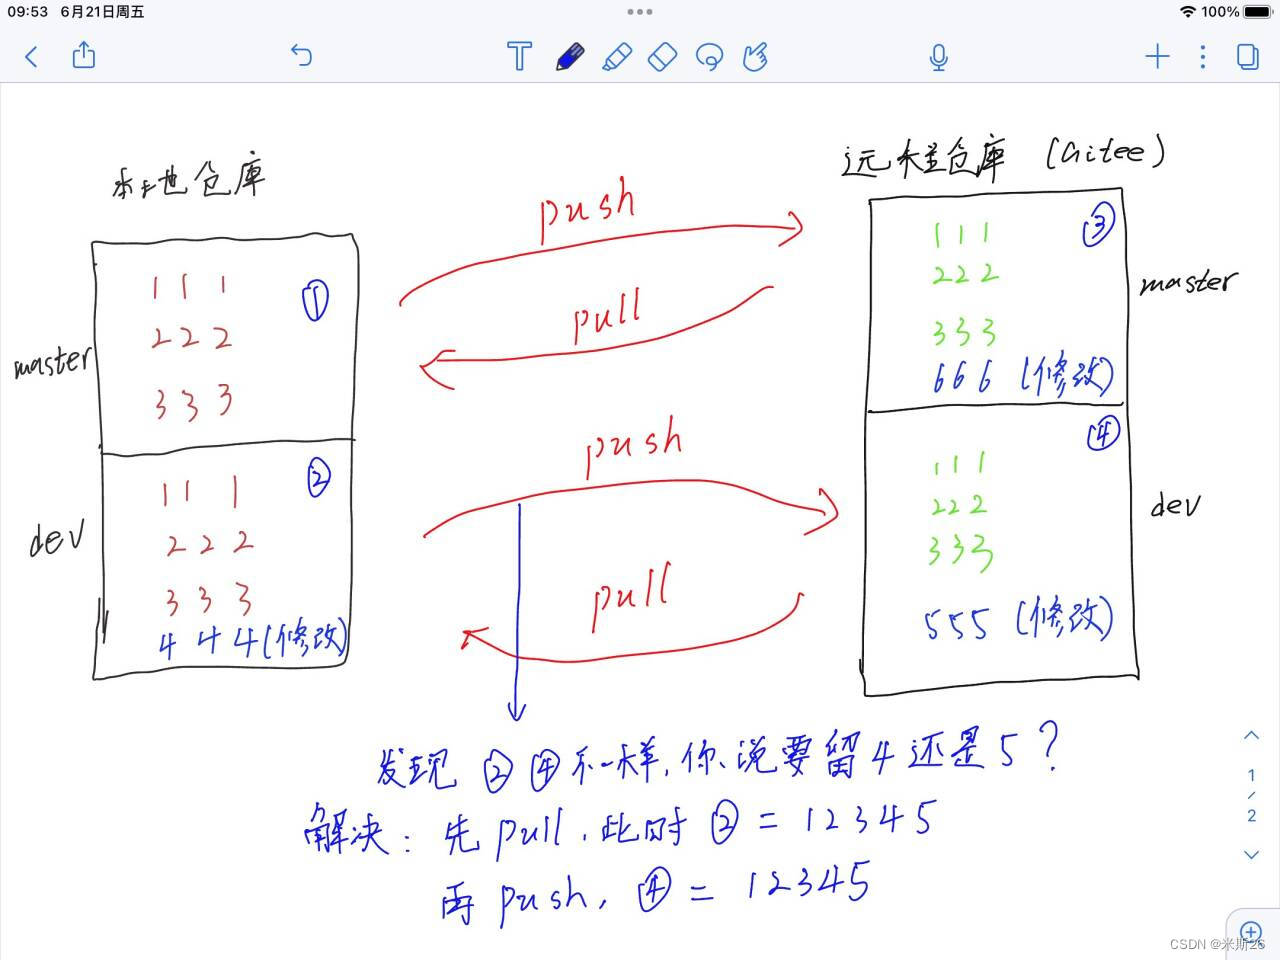 09:53 6月21日周五
100%
本地仓库
远程仓库 (Gitee)
push
pull
master
111
222
333
①
dev
111
222
333
444(修改)
②
push
pull
111
222
333
666 (修改)
③
master
111
222
333
555 (修改)
④
dev
发现 ② ④ 不一样, 你说要留4还是5?
解决: 先 pull, 此时 ② = 12345
再 push, ④ = 12345
1/2
CSDN @米斯26